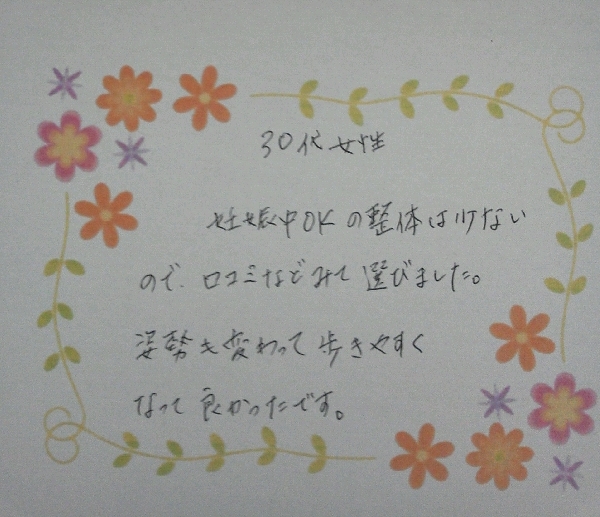 30代女性
妊娠中OKの整体は少ない
ので、口コミなどみて選びました。
姿勢も変わって歩きやすく
なって良かったです。